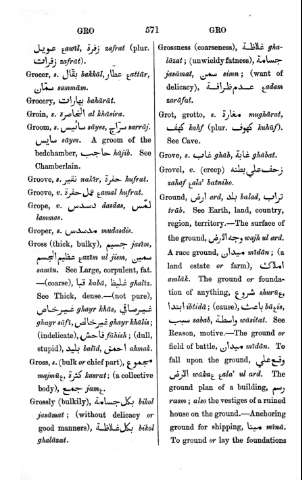 GRO 571 GRO
عويل عawīl, زفرة zafrat (plur.
زفرات zafrat).
Grocer, s. بقال bakkāl, عطار عattār,
سمان sammān.
Grocery, بهارات bahārāt.
Groin, s. الخاصرة al khāsira.
Groom, s. سايس sāyes, سراج sarrāj.
سايس sāyes. A groom of the
bedchamber, حاجب hājib. See
Chamberlain.
Groove, s. نقر nakr, حفرة hufrat.
Groove, v. عمل حفرة عamal hufrat.
Grope, v. دسدس dasdas, لمس
lammas.
Groper, s. مدسدس mudasdis.
Gross (thick, bulky), جسيم jasīm,
عظيم الجسم عazīm ul jism, سمين
samīn. See Large, corpulent, fat.
—(coarse), قبا kabā, غليظ ghalīz.
See Thick, dense.—(not pure),
غير خاص ghayr khās, غير صافي
ghayr sāfī, غير خالص ghayr khālis;
(indelicate), فاحش fāhish; (dull,
stupid), بليد balīd, احمق ahmak.
Gross, s. (bulk or chief part), مجموع
majmūع, كثرة kasrat; (a collective
body), جمع jamع.
Grossly (bulkily), بكل جسامة bikol
jasāmat; (without delicacy or
good manners), بكل غلاظة bikol
ghalāzat.
Grossness (coarseness), غلاظة gha-
lāzat; (unwieldy fatness), جسامة
jasāmat, سمن simn; (want of
delicacy), عدم ظرافة عadam
zarāfat.
Grot, grotto, s. مغارة mughārat,
كهف kahf (plur. كهوف kuhūf).
See Cave.
Grove, s. غاب ghāb, غابة ghābat.
Grovel, v. (creep) زحف على بطنه
zahaf عala' batnihe.
Ground, s. ارض ard, بلد balad, تراب
trāb. See Earth, land, country,
region, territory.—The surface of
the ground, وجه الارض wajh ul ard.
A race ground, ميدان mīdān; (a
land estate or farm), املاك
amlāk. The ground or founda-
tion of anything, شروع shurūع,
ابتدا ibtidā; (cause), باعث bāعis,
سبب sabab, واسطة wāsitat. See
Reason, motive.—The ground or
field of battle, ميدان mīdān. To
fall upon the ground, وقع على
الارض wakaع عala' ul ard. The
ground plan of a building, رسم
rasm; also the vestiges of a ruined
house on the ground.—Anchoring
ground for shipping, مينا mīnā.
To ground or lay the foundations